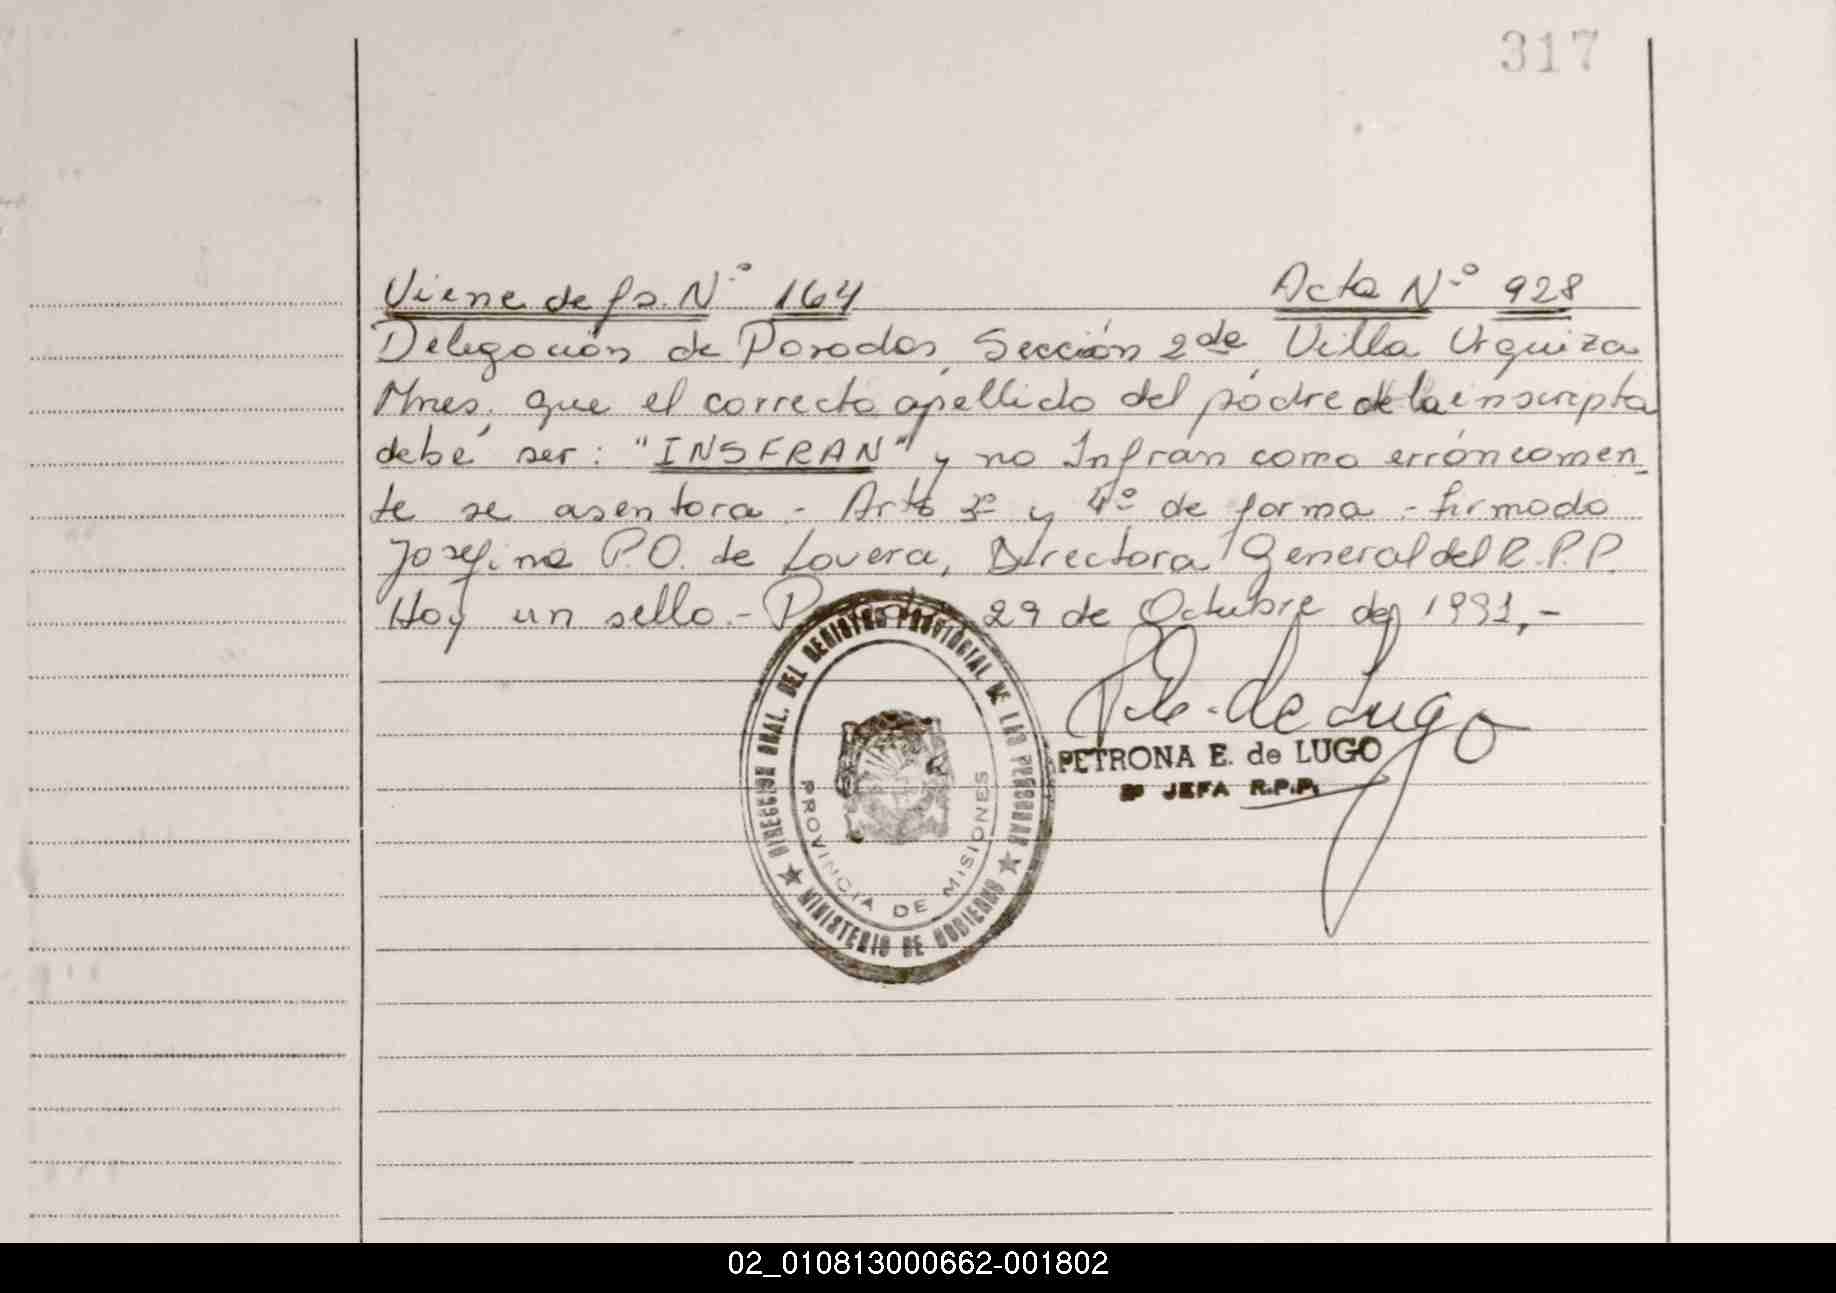 317
Viene de fs. Nº 164 Acta Nº 928
Delegación de Posadas, Sección 2da, Villa Urquiza
Mnes, que el correcto apellido del padre de la inscripta
debe ser: "INSFRAN" y no Infran como erróneamen-
te se asentara.- Arts 3º y 4º de forma.- firmado
Josefina P.O. de Lovera, Directora General del R.P.P.
Hay un sello.- 29 de Octubre de 1991,-
de Lugo
PETRONA E. de LUGO
JEFA R.P.P.
DIRECCION GRAL. DEL REGISTRO PROVINCIAL DE LAS PERSONAS
MINISTERIO DE GOBIERNO
PROVINCIA DE MISIONES
02_010813000662-001802